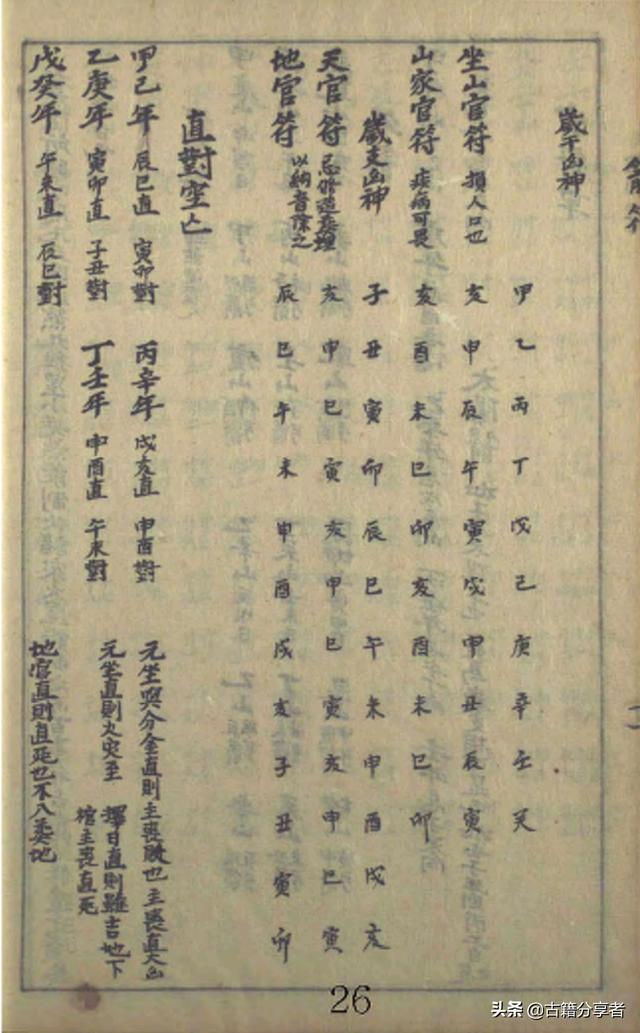 歲干凶神
甲乙丙丁戊己庚辛壬癸
坐山官符 損人口也 亥申辰午寅戌申丑辰寅
山家官符 疾病可畏 亥酉未巳卯亥酉未巳卯
歲支凶神 子丑寅卯辰巳午未申酉戌亥
天官符 忌修造葬埋 亥申巳寅亥申巳寅亥申巳寅
地官符 以納音除之 辰巳午未申酉戌亥子丑寅卯
直對空亡
甲己年 辰巳直 寅卯對 丙辛年 戌亥直 申酉對
乙庚年 寅卯直 子丑對 丁壬年 申酉直 午未對
戊癸年 午未直 辰巳對
元坐與分金直則主喪敗也 主喪直大凶
元坐直則火灾至 擇日直則雖吉地下
棺主喪直死
地官直則直死也不入葬地
26
头条 @古籍分享者